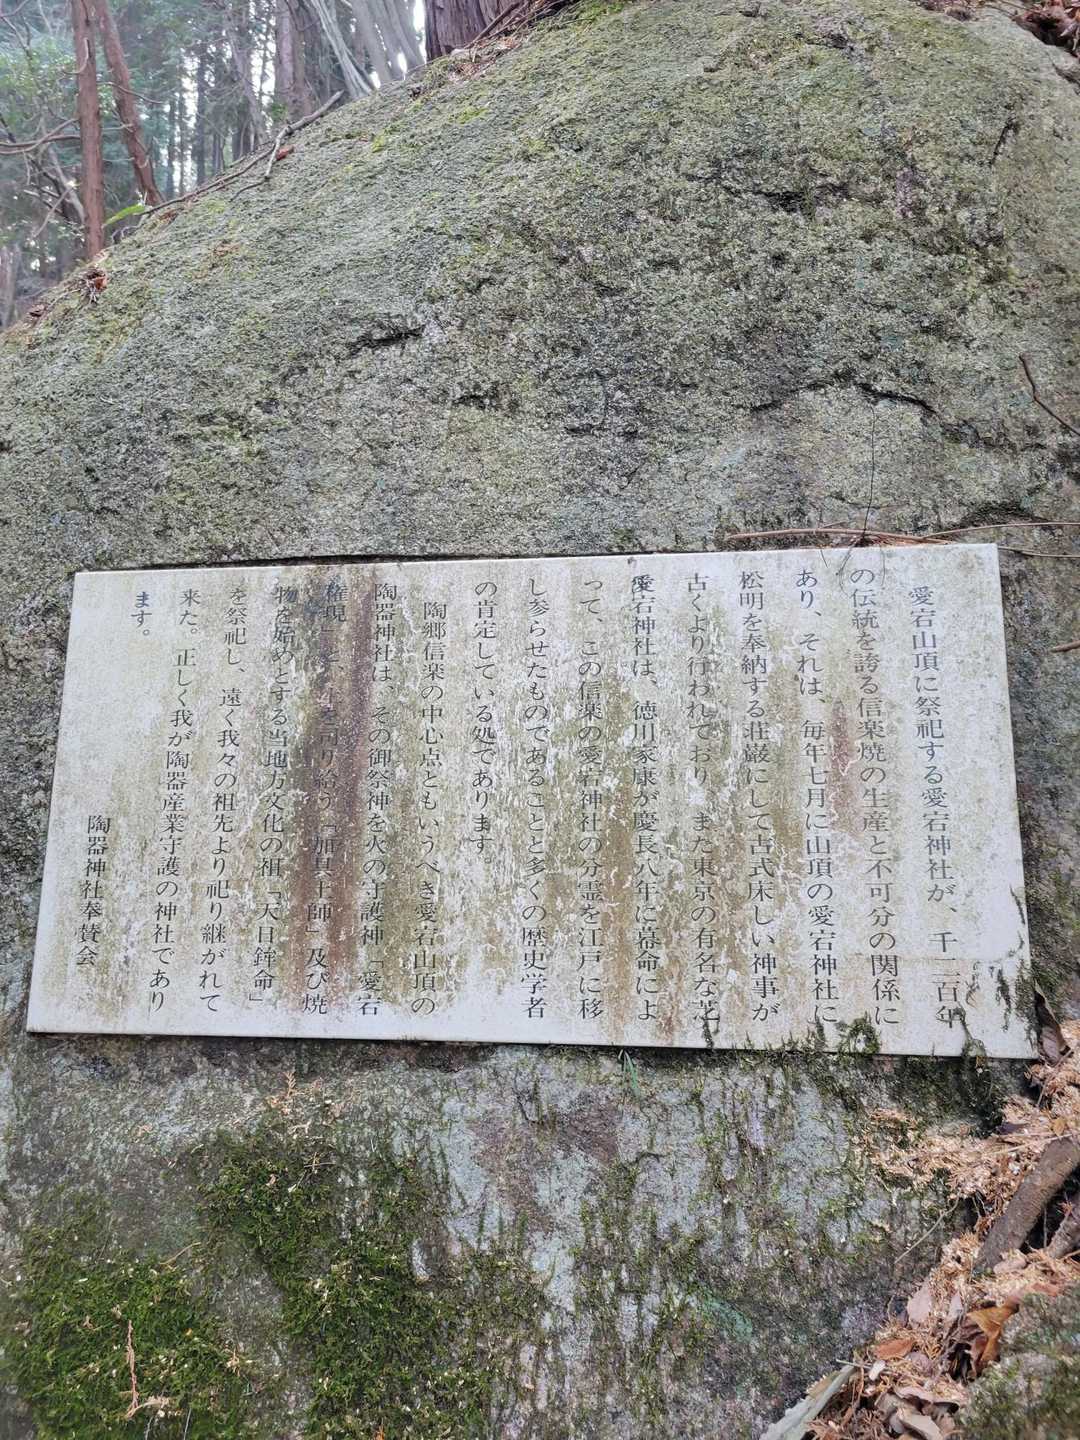 愛宕山頂に祭祀する愛宕神社が、千二百年
の伝統を誇る信楽焼の生産と不可分の関係に
あり、それは、毎年七月に山頂の愛宕神社に
松明を奉納する荘厳にして古式床しい神事が
古くより行われており、また東京の有名な芝
愛宕神社は、徳川家康が慶長八年に幕命によ
って、この信楽の愛宕神社の分霊を江戸に移
し参らせたものであることと多くの歴史学者
の肯定している処であります。
陶郷信楽の中心点ともいうべき愛宕山頂の
陶器神社は、その御祭神を火の守護神「愛宕
権現」と、土を司り給う「加具土師」及び焼
物を始めとする当地方文化の祖「天日鉾命」
を祭祀し、遠く我々の祖先より祀り継がれて
来た。正しく我が陶器産業守護の神社であり
ます。
陶器神社奉賛会